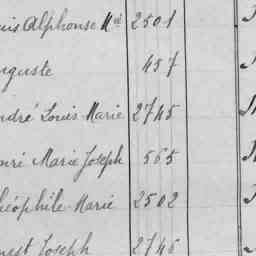 uis Alphonse Mie 2501
uguste 457
ndré Louis Marie 2745
nri Marie Joseph 565
héophile Marie 2502
nest Joseph 2746